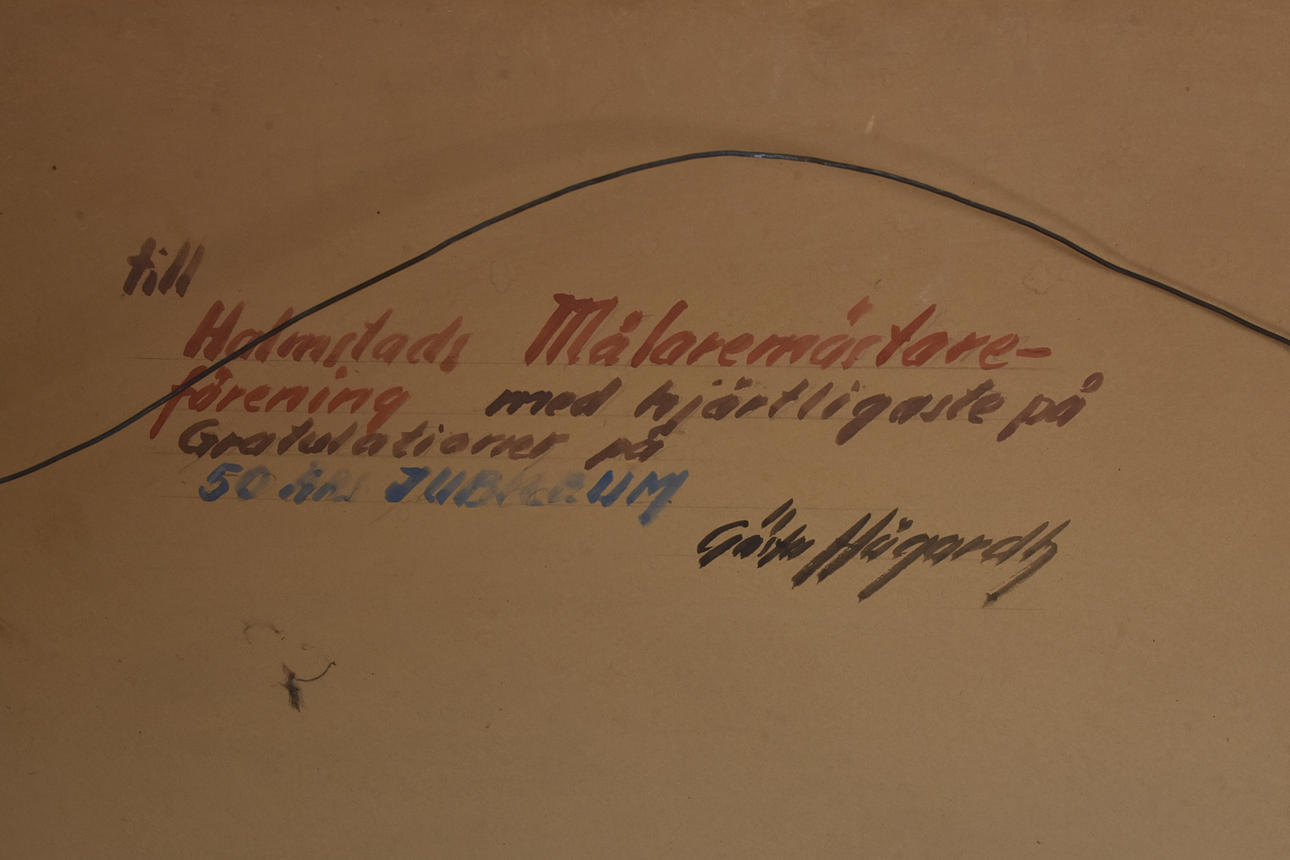 till
Halmstads Målaremästare-
förening med hjärtligaste på
Gratulationer på
50 års JUBILEUM
Gösta Högardh